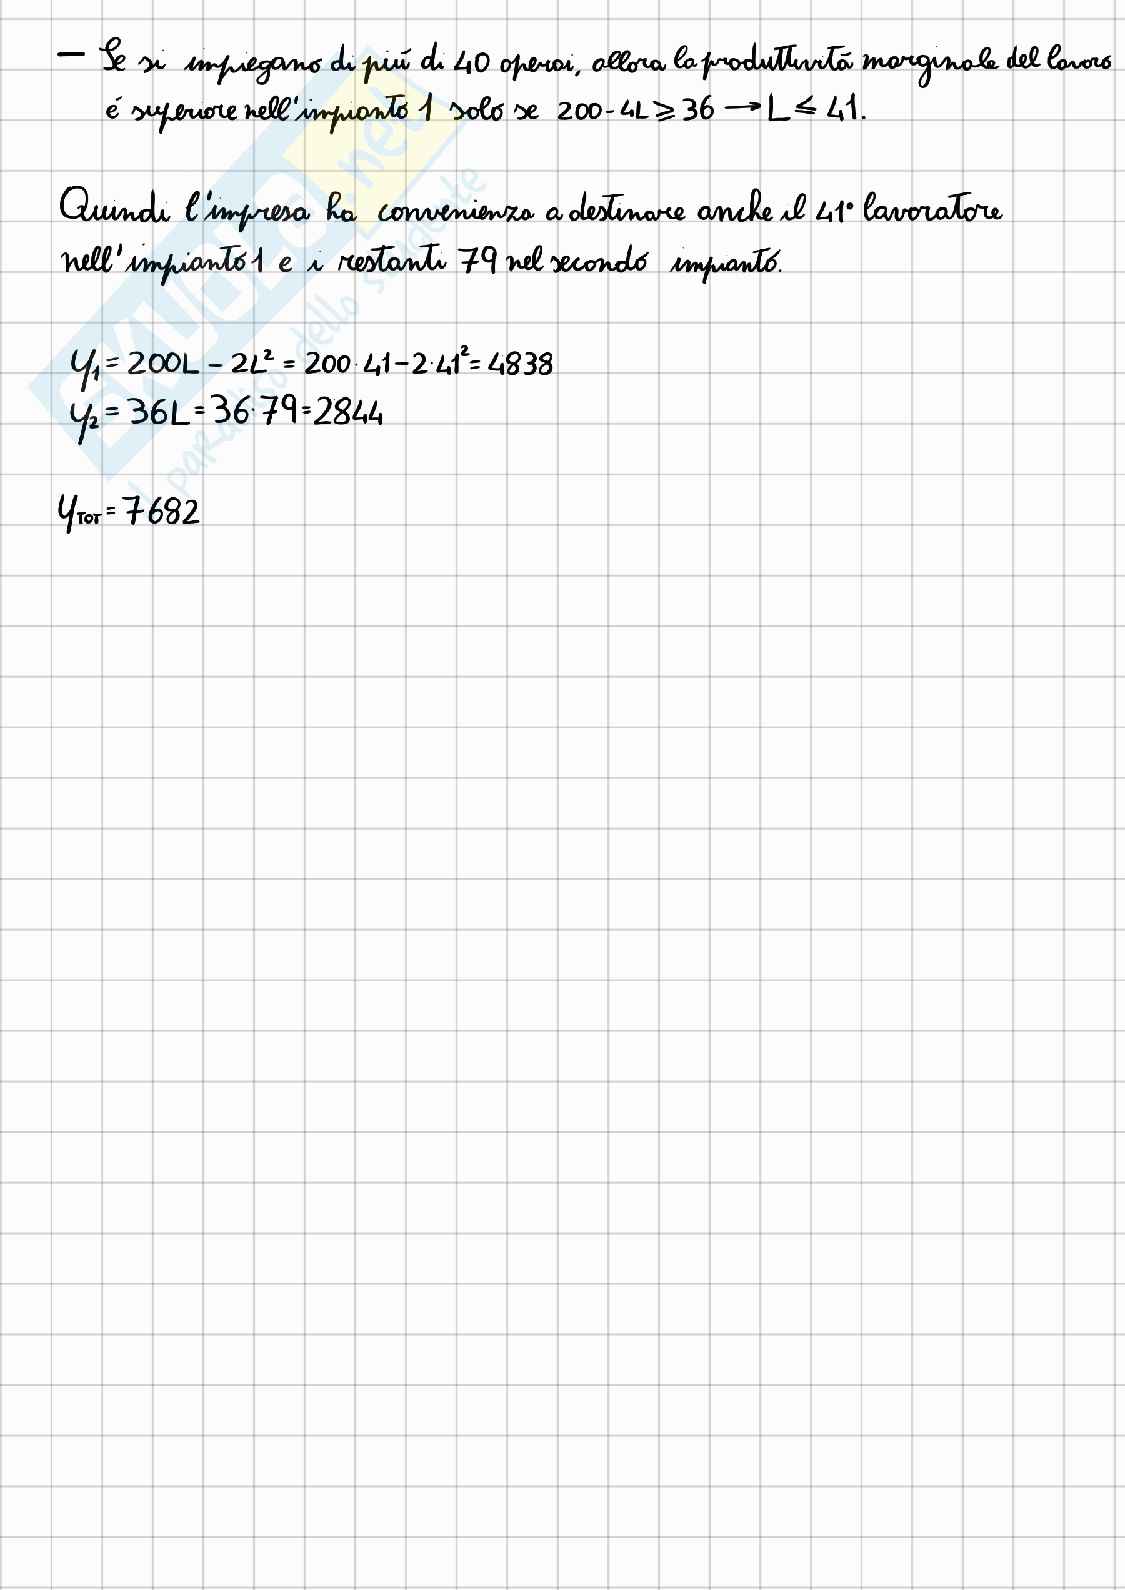 — Se si impiegano di più di 40 operai, allora la produttività marginale del lavoro
é superiore nell'impianto 1 solo se 200-4L ⩾ 36 → L ≤ 41.
Quindi l'impresa ha convenienza a destinare anche il 41° lavoratore
nell'impianto 1 e i restanti 79 nel secondo impianto.
y₁ = 200L - 2L² = 200·41-2·41² = 4838
y₂ = 36L = 36·79 = 2844
yTOT = 7682
SKUOLA.net
il paradiso dello studente